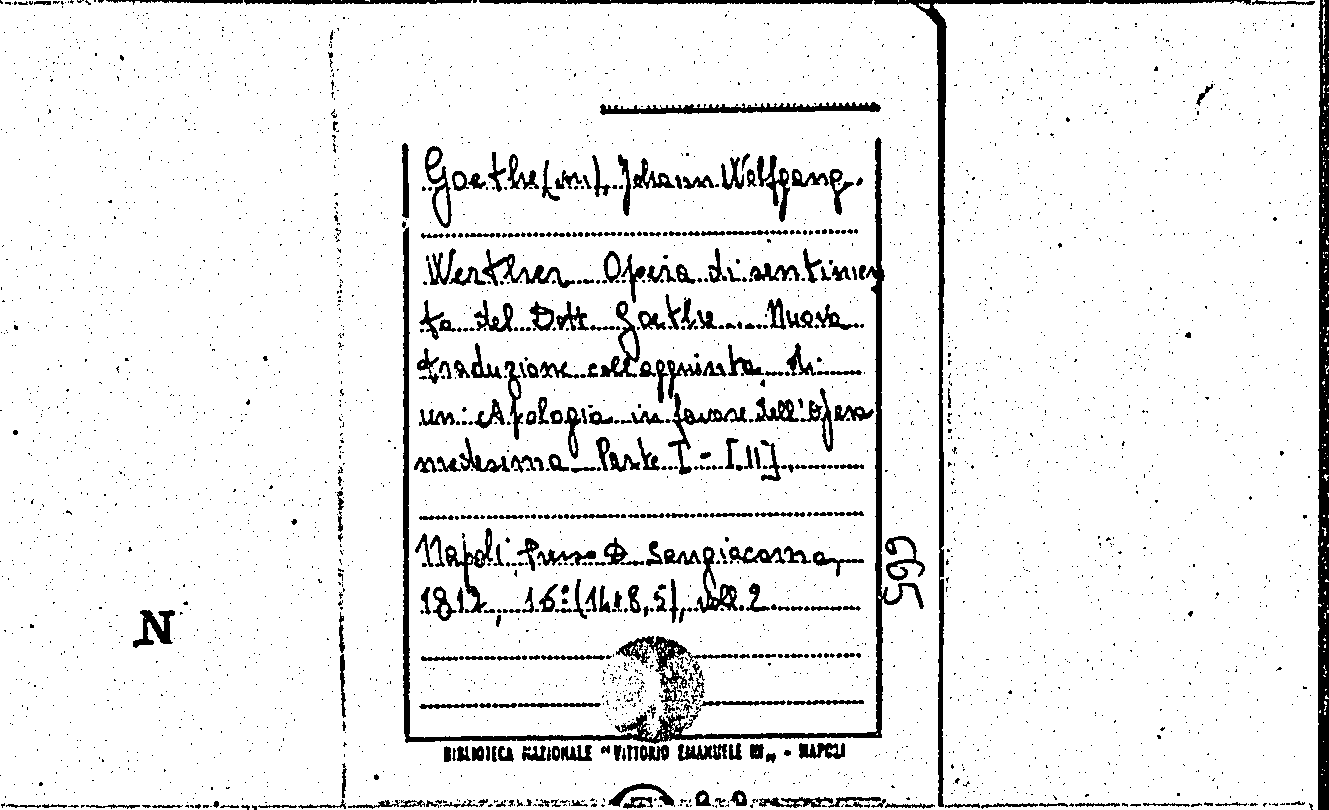 Goethe (von), Johann Wolfgang.
Werther Opera di sentimen
to del Dott Goethe Nuova
traduzione coll'aggiunta di
un: Apologia in favore dell'Opera
medesima Parte I - [II]
Napoli Presso D Sangiacomo,
1812, 16º (14x8,5), voll 2
599
N
BIBLIOTECA NAZIONALE "VITTORIO EMANUELE III„ - NAPOLI